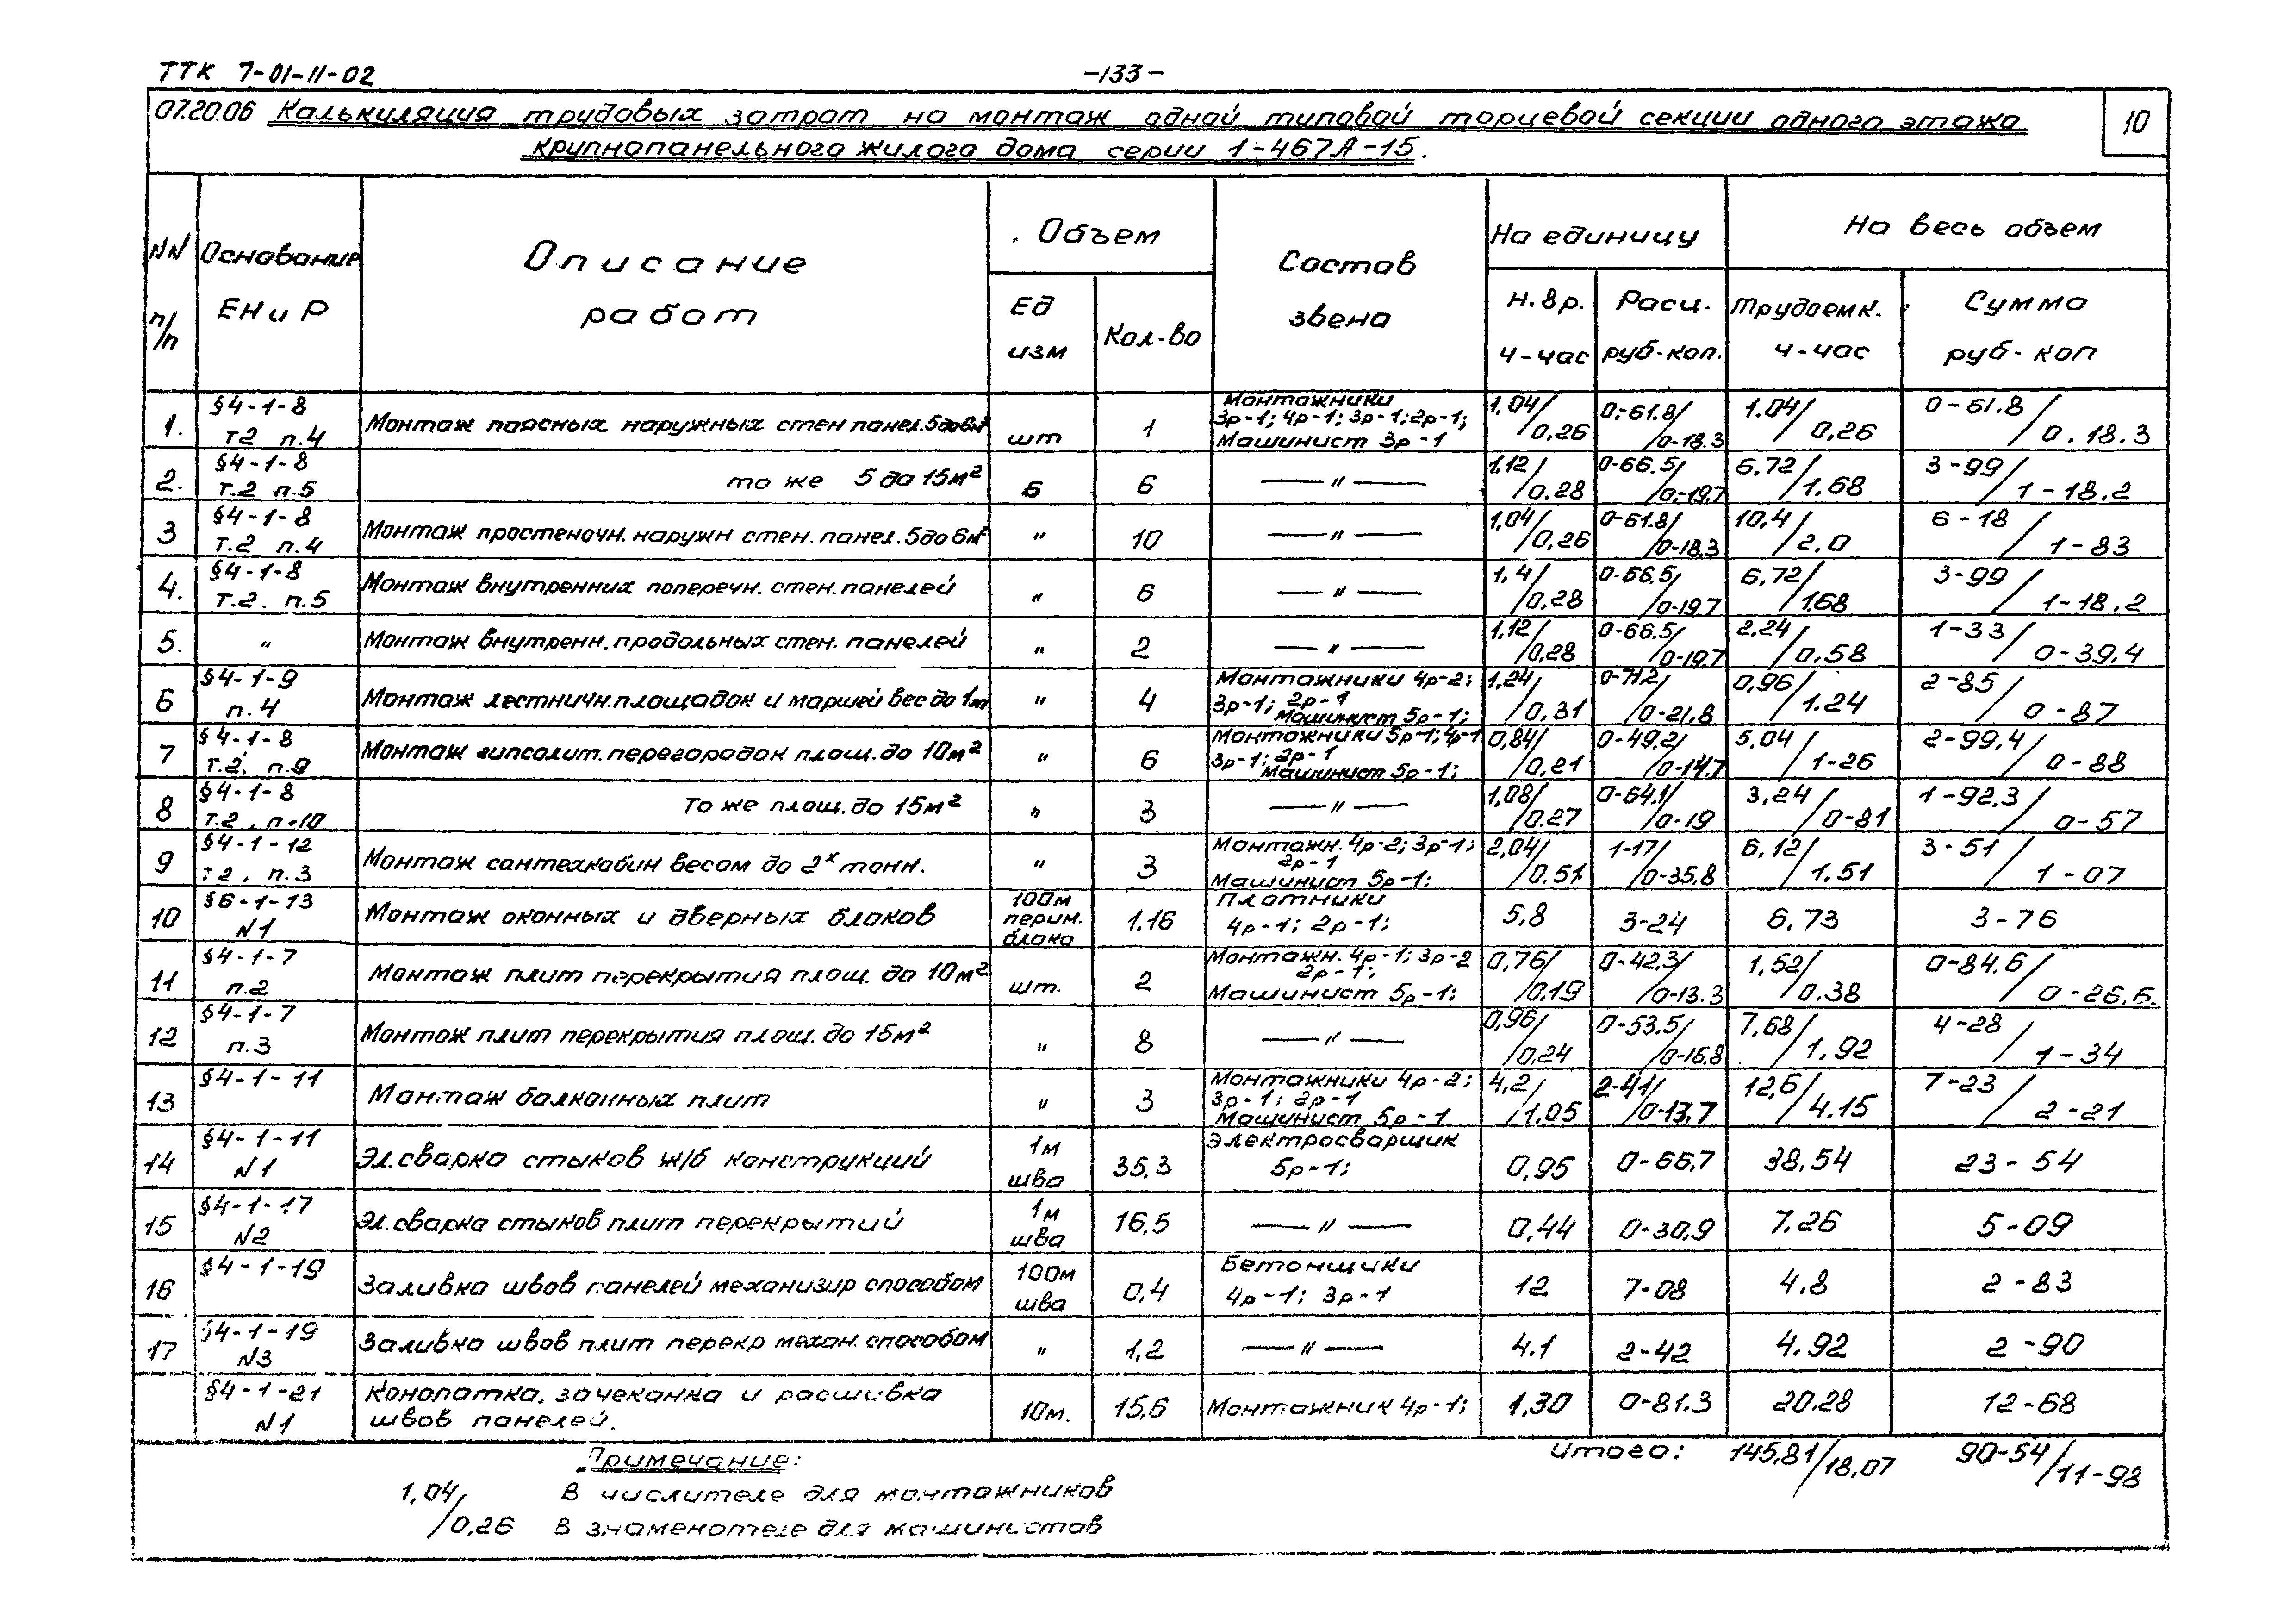 ТТК 7-01-11-02
-133-
07.20.06 Калькуляция трудовых затрат на монтаж одной типовой торцевой секции одного этажа
крупнопанельного жилого дома серии 1-467А-15.
10
NN п/п
Основание ЕНиР
Описание работ
Объем
Ед изм
Кол-во
Состав звена
На единицу
Н.вр. ч-час
Расц. руб-коп.
На весь объем
Трудоемк. ч-час
Сумма руб-коп
1. §4-1-8 т2 п.4 Монтаж поясных наружных стен панел. 5 до 6м² шт 1 Монтажники 3р-1; 4р-1; 3р-1; 2р-1; Машинист 3р-1 1,04/0,26 0-61.8/0-18.3 1.04/0,26 0-61.8/0.18.3
2. §4-1-8 т.2 п.5 то же 5 до 15м² б 6 —〃— 1,12/0.28 0-66.5/0-19.7 6,72/1.68 3-99/1-18.2
3 §4-1-8 т.2 п.4 Монтаж простеночн. наружн стен. панел. 5 до 6м² " 10 —〃— 1,04/0,26 0-61.8/0-18.3 10,4/2.0 6-18/1-83
4. §4-1-8 т.2. п.5 Монтаж внутренних поперечн. стен. панелей " 6 —〃— 1,4/0,28 0-66,5/0-19.7 6,72/1.68 3-99/1-18.2
5. " Монтаж внутренн. продольных стен. панелей " 2 —〃— 1,12/0,28 0-66.5/0-19.7 2,24/0.58 1-33/0-39.4
6 §4-1-9 п.4 Монтаж лестничн. площадок и маршей вес до 1т " 4 Монтажники 4р-2; 3р-1; 2р-1 Машинист 5р-1; 1,24/0,31 0-71.2/0-21.8 0,96/1.24 2-85/0-87
7 §4-1-8 т.2. п.9 Монтаж гипсолит. перегородок площ. до 10м² " 6 Монтажники 5р-1; 4р-1 3р-1; 2р-1 Машинист 5р-1; 0,84/0,21 0-49.2/0-14.7 5.04/1-26 2-99.4/0-88
8 §4-1-8 т.2. п.10 То же площ. до 15м² " 3 —〃— 1,08/0.27 0-64.1/0-19 3,24/0-81 1-92.3/0-57
9 §4-1-12 т2. п.3 Монтаж сантехкабин весом до 2х тонн. " 3 Монтажн. 4р-2; 3р-1; 2р-1 Машинист 5р-1: 2,04/0.51 1-17/0-35,8 6,12/1.51 3-51/1-07
10 §6-1-13 N1 Монтаж оконных и дверных блоков 100м перим. блока 1.16 Плотники 4р-1; 2р-1; 5,8 3-24 6.73 3-76
11 §4-1-7 п.2 Монтаж плит перекрытия площ. до 10м² шт. 2 Монтажн. 4р-1; 3р-2 2р-1; Машинист 5р-1: 0,76/0,19 0-42.3/0-13.3 1,52/0.38 0-84.6/0-26.6.
12 §4-1-7 п.3 Монтаж плит перекрытия площ. до 15м² " 8 —〃— 0,96/0,24 0-53.5/0-16.8 7,68/1,92 4-28/1-34
13 §4-1-11 Монтаж балконных плит " 3 Монтажники 4р-2; 3р-1; 2р-1 Машинист 5р-1 4,2/1,05 2-41/0-13,7 12,6/4.15 7-23/2-21
14 §4-1-11 N1 Эл.сварка стыков ж/б конструкций 1м шва 35,3 Электросварщик 5р-1; 0,95 0-66,7 38,54 23-54
15 §4-1-17 N2 Эл.сварка стыков плит перекрытий 1м шва 16,5 —〃— 0,44 0-30,9 7.26 5-09
16 §4-1-19 Заливка швов панелей механизир способом 100м шва 0,4 Бетонщики 4р-1; 3р-1 12 7-08 4.8 2-83
17 §4-1-19 N3 Заливка швов плит перекр механ. способом " 1,2 —〃— 4.1 2-42 4.92 2-90
§4-1-21 N1 Конопатка, зачеканка и расшивка швов панелей. 10м. 15,6 Монтажник 4р-1; 1,30 0-81.3 20.28 12-68
Итого: 145,81/18,07 90-54/11-93
Примечание:
1,04/0,26 В числителе для монтажников
В знаменателе для машинистов